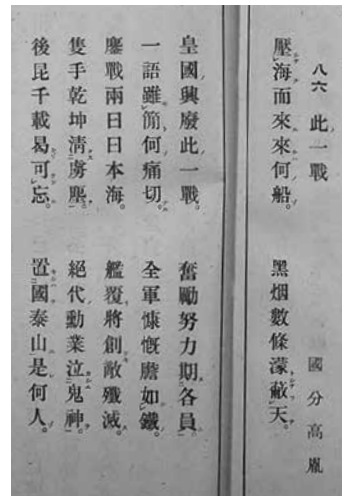 八六 此一戰 國分高胤
壓海而來來何船。 黑烟數條濛蔽天。
皇國興廢此一戰。 奮勵努力期各員。
一語雖簡何痛切。 全軍慷慨膽如鐵。
鏖戰兩日日本海。 艦覆將創敵殲滅。
隻手乾坤淸虜塵。 絕代勳業泣鬼神。
後昆千載曷可忘。 置國泰山是何人。